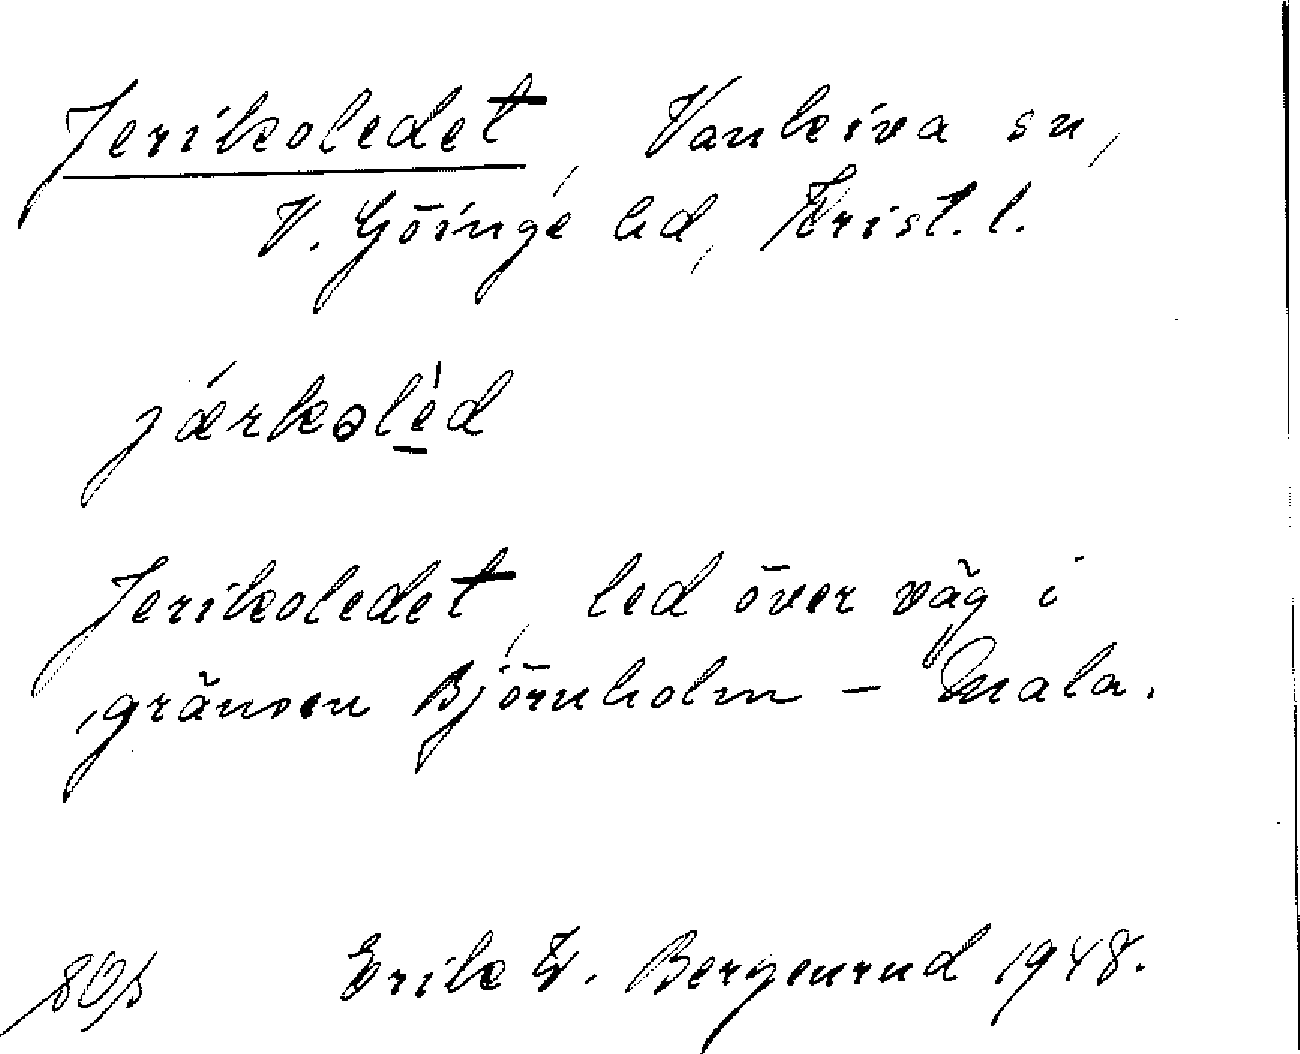 Jerikoledet, Vankiva sn,
V. Göinge hd, Krist. l.
járkəlèd
Jerikoledet, led över väg i
gränsen Björnholm – Mala.
Erik E. Bergenrud 1948.